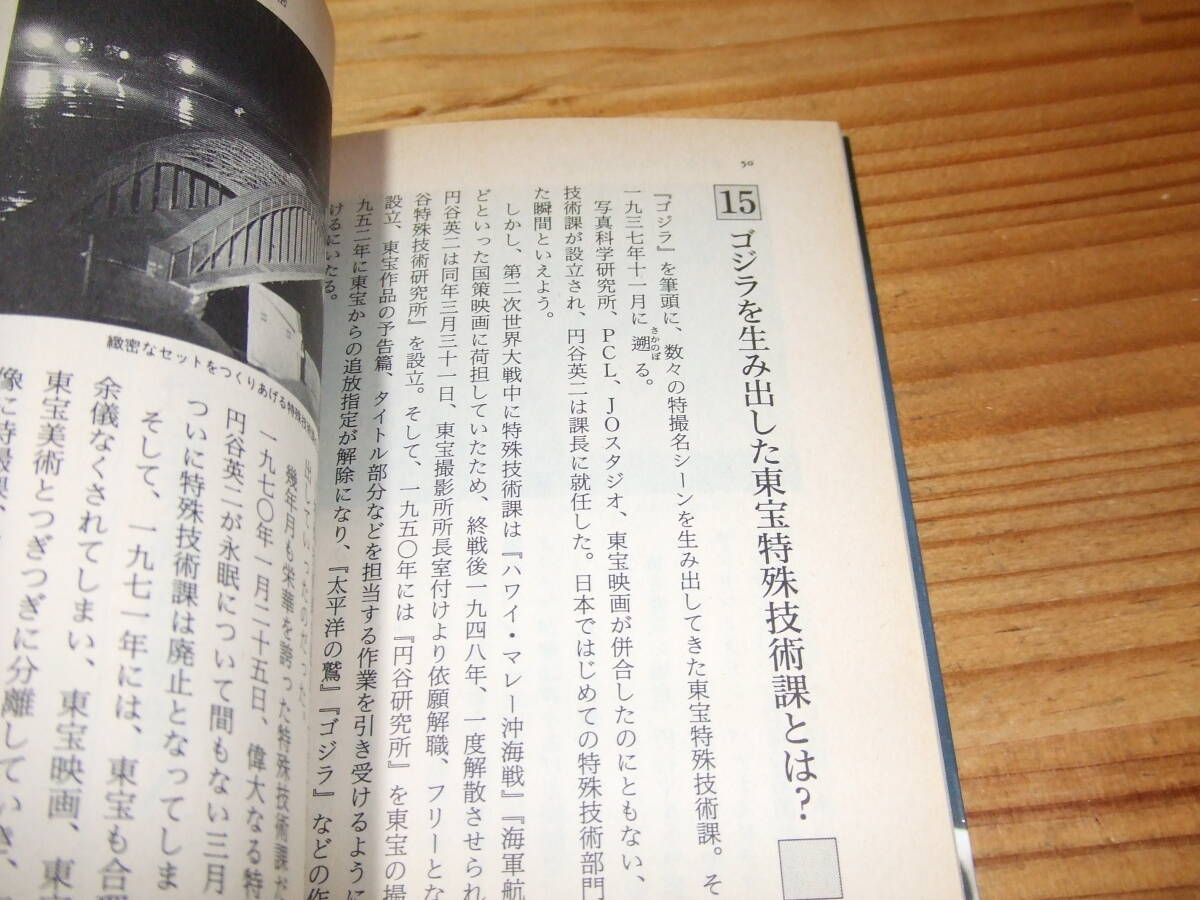 50
15 ゴジラを生み出した東宝特殊技術課とは?
『ゴジラ』を筆頭に、数々の特撮名シーンを生み出してきた東宝特殊技術課。そ
一九三七年十一月に遡る。
さかのぼ
写真科学研究所、PCL、JOスタジオ、東宝映画が併合したのにともない、
技術課が設立され、円谷英二は課長に就任した。日本ではじめての特殊技術部門
た瞬間といえよう。
しかし、第二次世界大戦中に特殊技術課は『ハワイ・マレー沖海戦』『海軍航
どといった国策映画に荷担していたため、終戦後一九四八年、一度解散させられ
円谷英二は同年三月三十一日、東宝撮影所所長室付けより依願解職、フリーとな
谷特殊技術研究所』を設立。そして、一九五〇年には『円谷研究所』を東宝の撮
設立、東宝作品の予告篇、タイトル部分などを担当する作業を引き受けるように
九五二年に東宝からの追放指定が解除になり、『太平洋の鷲』『ゴジラ』などの作
けるにいたる。
緻密なセットをつくりあげる特殊技術
出していったのだった。
幾年月も栄華を誇った特殊技術課だ
一九七〇年一月二十五日、偉大なる特
円谷英二が永眠について間もない三月
ついに特殊技術課は廃止となってしま
そして、一九七一年には、東宝も合理
余儀なくされてしまい、東宝映画、東
東宝美術とつぎつぎに分離していき、
像に特撮